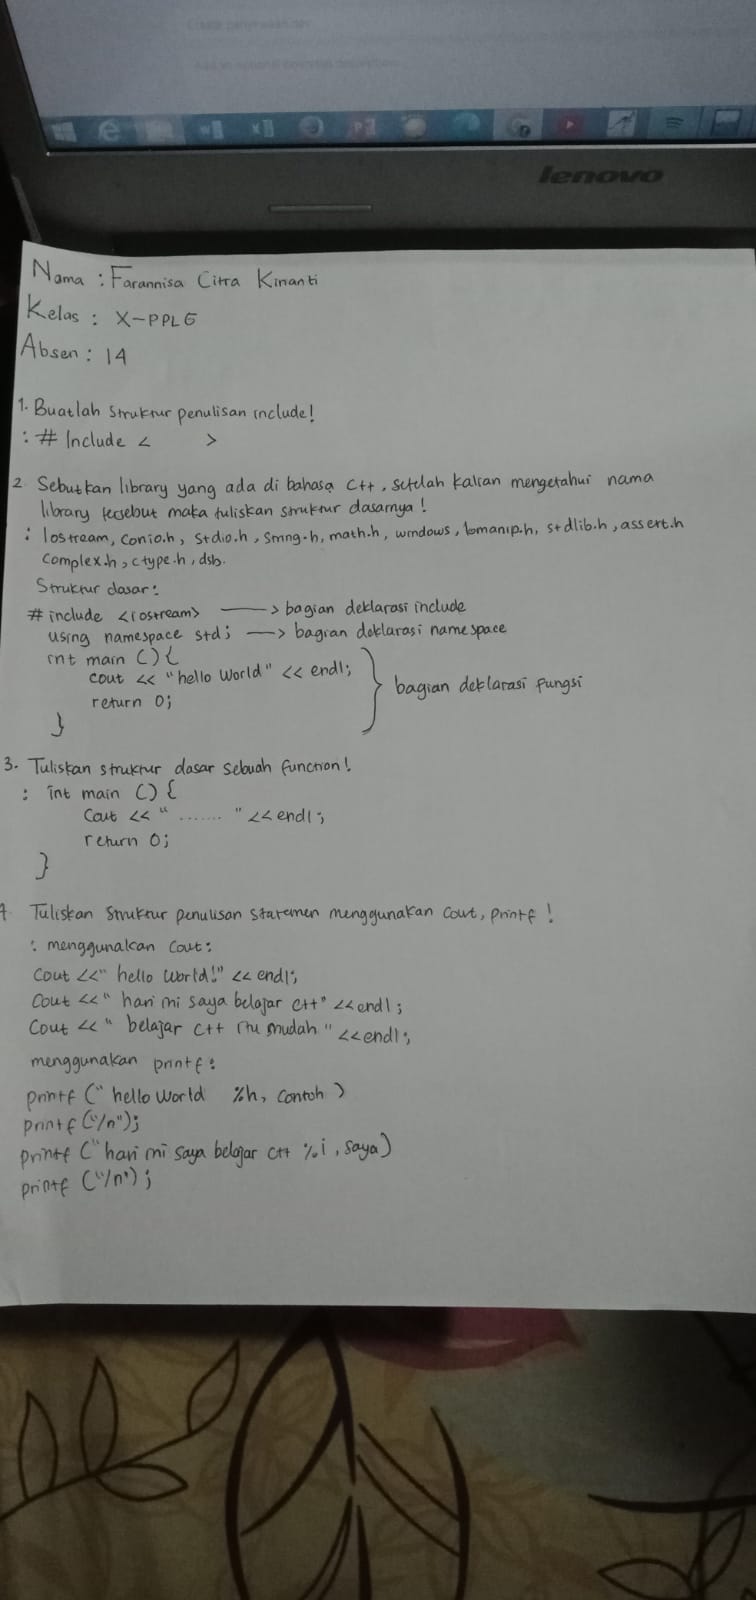 lenovo
Nama : Farannisa Citra Kinanti
Kelas : X-PPLG
Absen : 14
1. Buatlah struktur penulisan include!
: # Include < >
2. Sebutkan library yang ada di bahasa C++, setelah kalian mengetahui nama
library tersebut maka tuliskan struktur dasarnya !
: Iostream, conio.h, stdio.h, string.h, math.h, windows, iomanip.h, stdlib.h, assert.h
complex.h, ctype.h, dsb.
Struktur dasar :
# include <iostream> ——> bagian deklarasi include
using namespace std; ——> bagian deklarasi namespace
int main () {
cout << "hello World" << endl;
return 0;
} bagian deklarasi fungsi
3. Tuliskan struktur dasar sebuah function!
: int main () {
Cout << " ....... " << endl;
return 0;
}
Tuliskan struktur penulisan statemen menggunakan Cout, printf !
: menggunakan Cout :
Cout <<" hello World!" << endl;
Cout << " hari ini saya belajar C++" << endl;
Cout << " belajar C++ itu mudah " <<endl;
menggunakan printf :
printf (" hello World %h, contoh )
printf ("/n");
printf ("hari ini saya belajar C++ %i, saya)
printf ("/n");